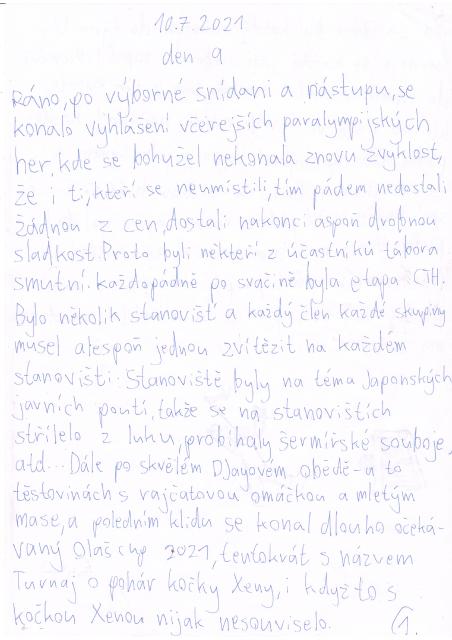 10.7.2021
den 9
Ráno, po výborné snídani a nástupu, se
konalo vyhlášení včerejších paralympijských
her, kde se bohužel nekonala znovu zvyklost,
že i ti, kteří se neumístili, tím pádem nedostali
žádnou z cen, dostali nakonci aspoň drobnou
sladkost. Proto byli někteří z účastníků tábora
smutní. každopádně po svačině byla etapa CTH.
Bylo několik stanovišť a každý člen každé skupiny
musel alespoň jednou zvítězit na každém
stanovišti. Stanoviště byly na téma Japonských
javních poutí, takže se na stanovištích
střílelo z luku, probíhaly šermířské souboje,
atd... Dále po skvělém Djayovém obědě-a to
těstovinách s rajčatovou omáčkou a mletým
mase, a poledním klidu se konal dlouho očeká-
vaný Olaš cup 2021, tentokrát s názvem
Turnaj o pohár kočky Xeny, i když to s
kočkou Xenou nijak nesouviselo.
1.